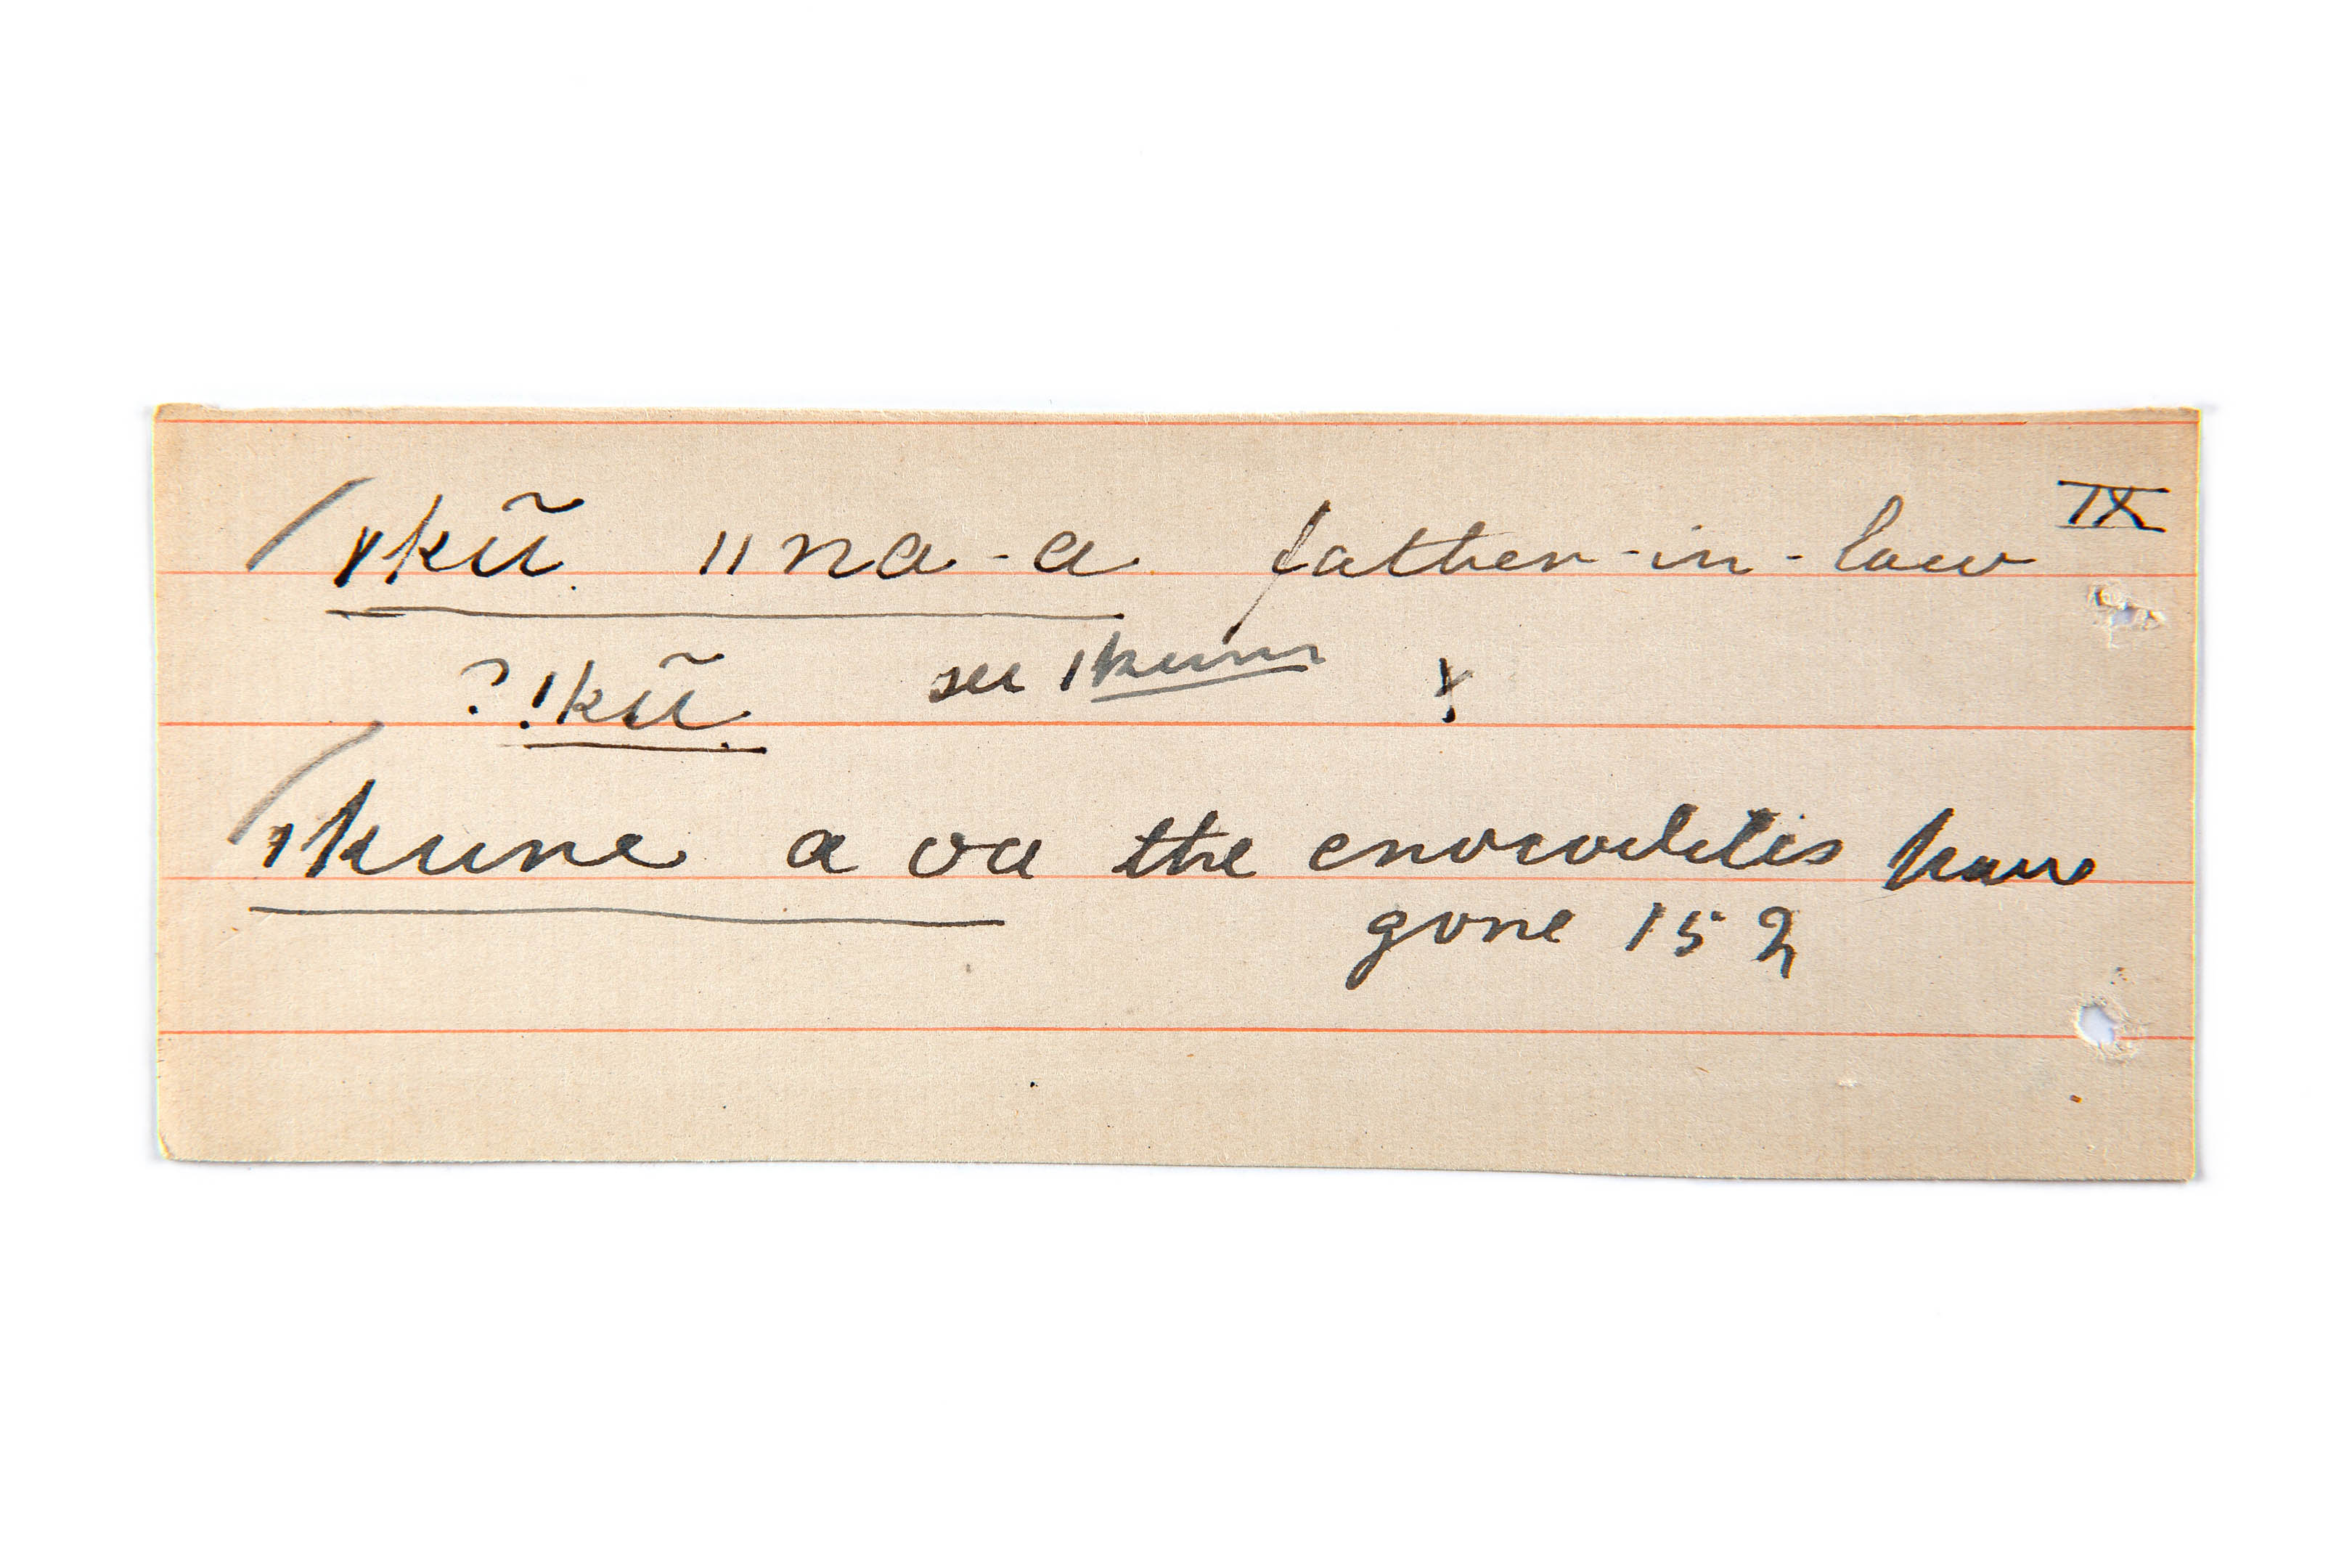 IX
ǀkũ ǁna-a father-in-law
? !kũ see ǀkuni x
ǀkune a oa the crocodiles have
gone 152